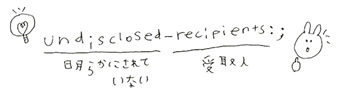 undisclosed-recipients:;
明らかにされて 受取人
いない